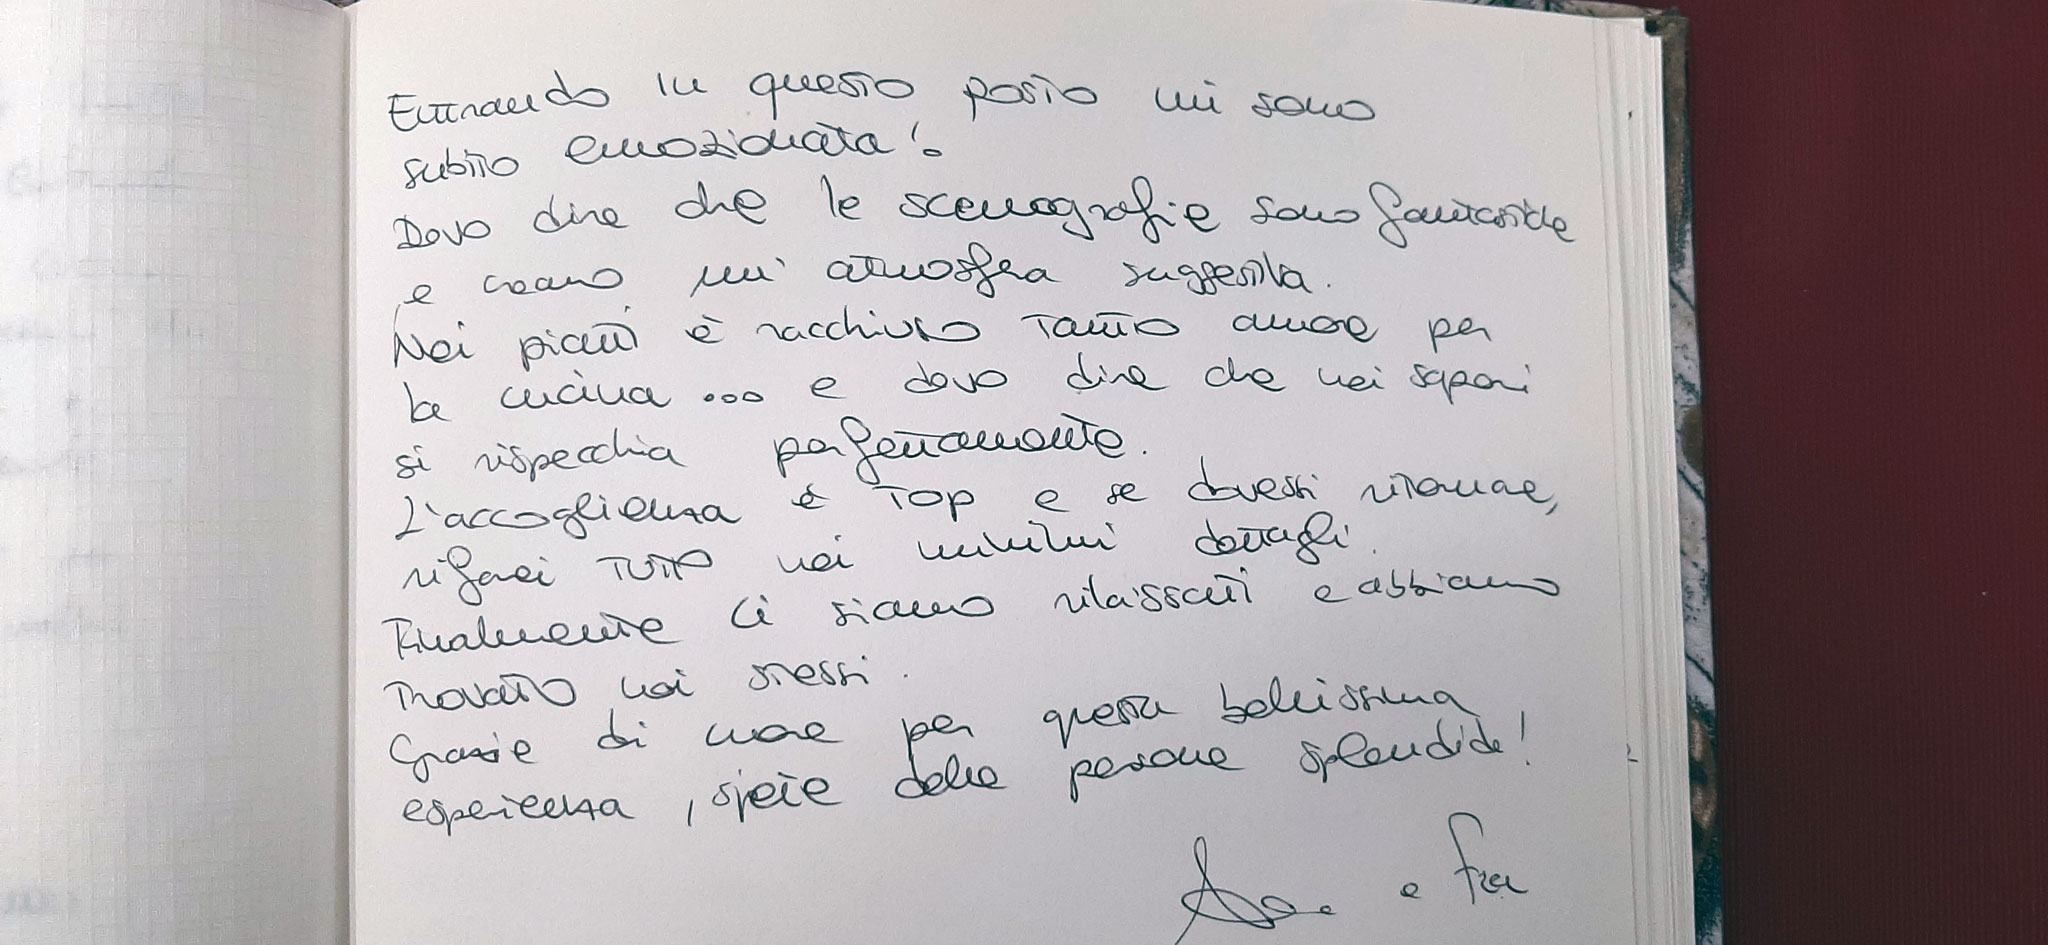 Entrando in questo posto mi sono
subito emozionata!
Devo dire che le scenografie sono fantastiche
e creano un'atmosfera suggestiva.
Nei piatti è racchiuso tanto amore per
la cucina ... e devo dire che nei sapori
si rispecchia perfettamente.
L'accoglienza è TOP e se dovessi ritornare,
rifarei TUTTO nei minimi dettagli.
Finalmente ci siamo rilassati e abbiamo
trovato noi stessi.
Grazie di cuore per questa bellissima
esperienza, siete delle persone splendide!
e Fra